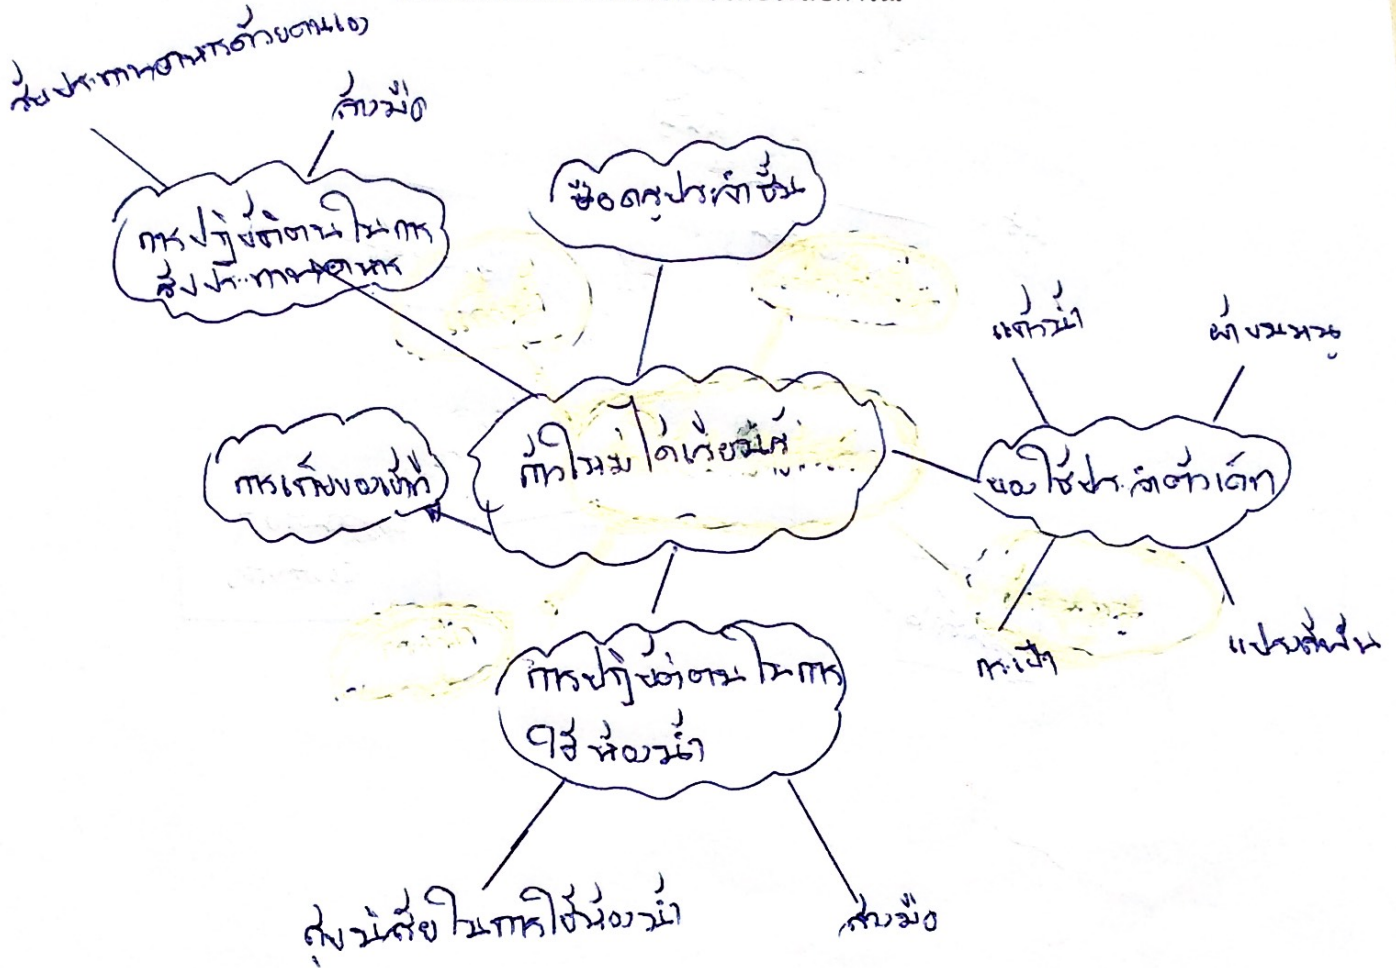 รับประทานอาหารด้วยตนเอง
ล้างมือ
การปฏิบัติตนในการ
รับประทานอาหาร
ชื่อครูประจำชั้น
แก้วน้ำ
ผ้าขนหนู
การเก็บของเข้าที่
ก้าวใหม่ได้เรียนรู้
ของใช้ประจำตัวเด็ก
กระเป๋า
แปรงสีฟัน
การปฏิบัติตนในการ
ใช้ห้องน้ำ
สุขนิสัยในการใช้ห้องน้ำ
ล้างมือ